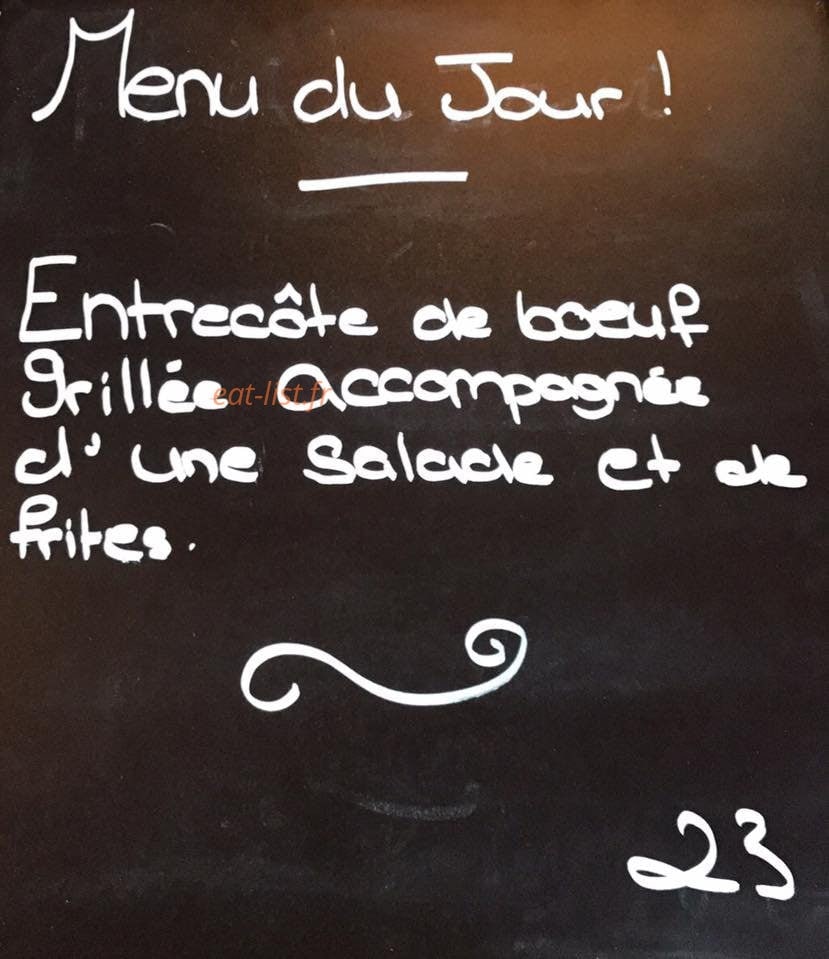 Menu du Jour !
Entrecôte de boeuf
grillée accompagnée
eat-list.fr
d'une salade et de
frites.
23